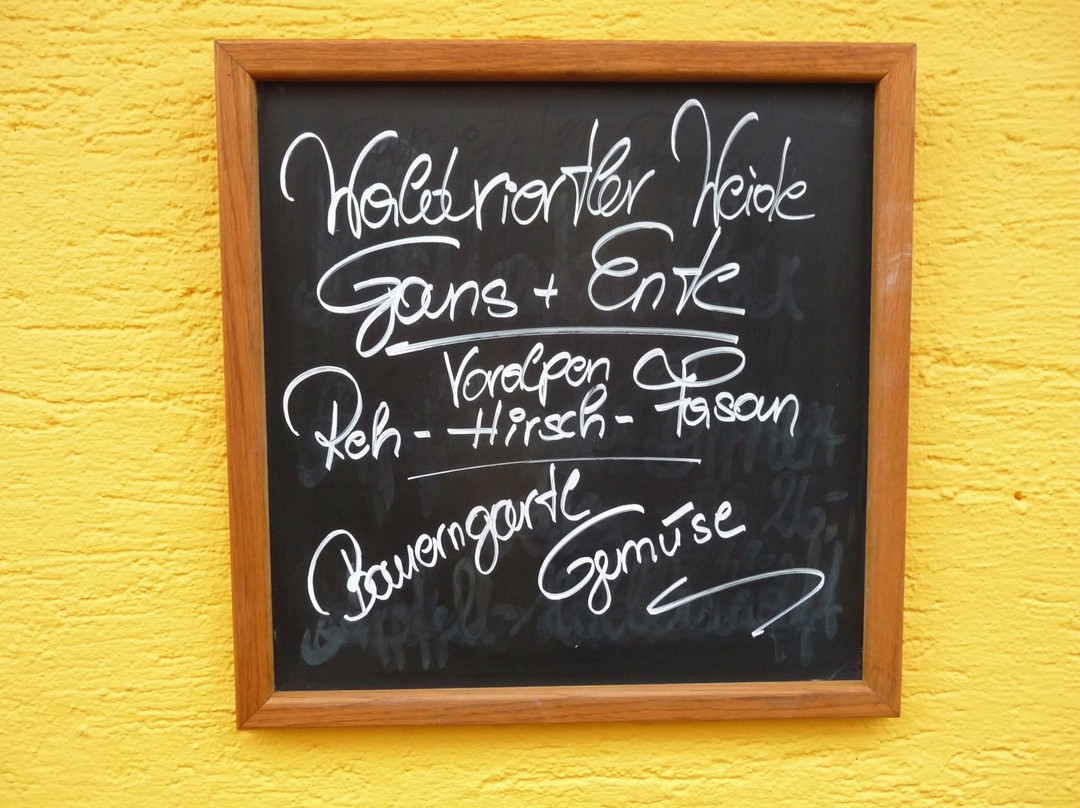 Waldviertler Weide
Gans + Ente
Voralpen
Reh - Hirsch - Fasan
Bauerngartl
Gemüse